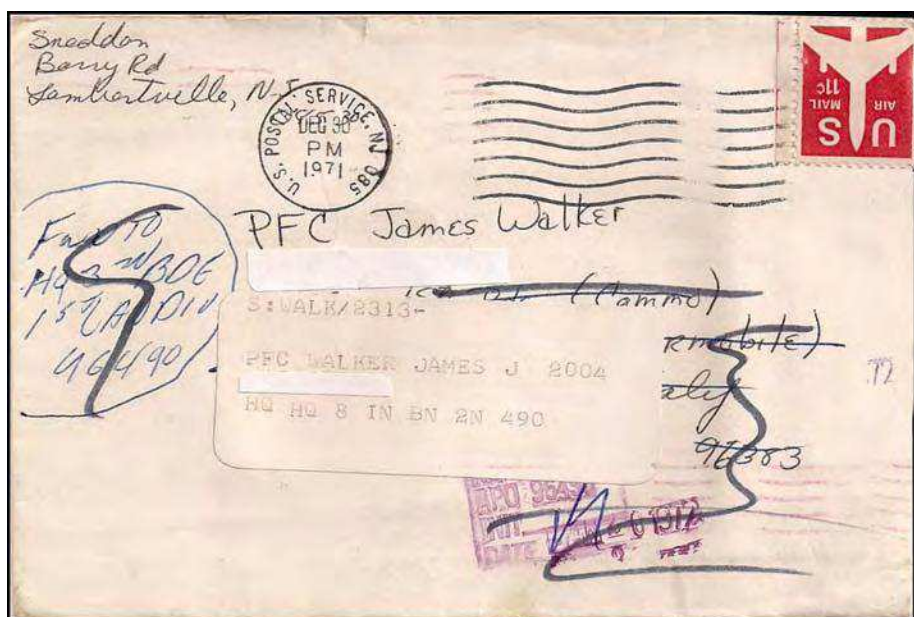 Sneddon
Barry Rd
Lambertville, N.J.
U.S. POSTAL SERVICE, NJ 085
DEC 30
PM
1971
US
AIR MAIL
11c
PFC James Walker
(Commo)
rmobile)
96383
Fwd TO
HQ BDE
1st DIV
96490
S:WALK/2313-
PFC WALKER JAMES J 2004
HQ HQ 8 IN BN 2N 490
APO
UNIT
DATE JAN 6 1972
72